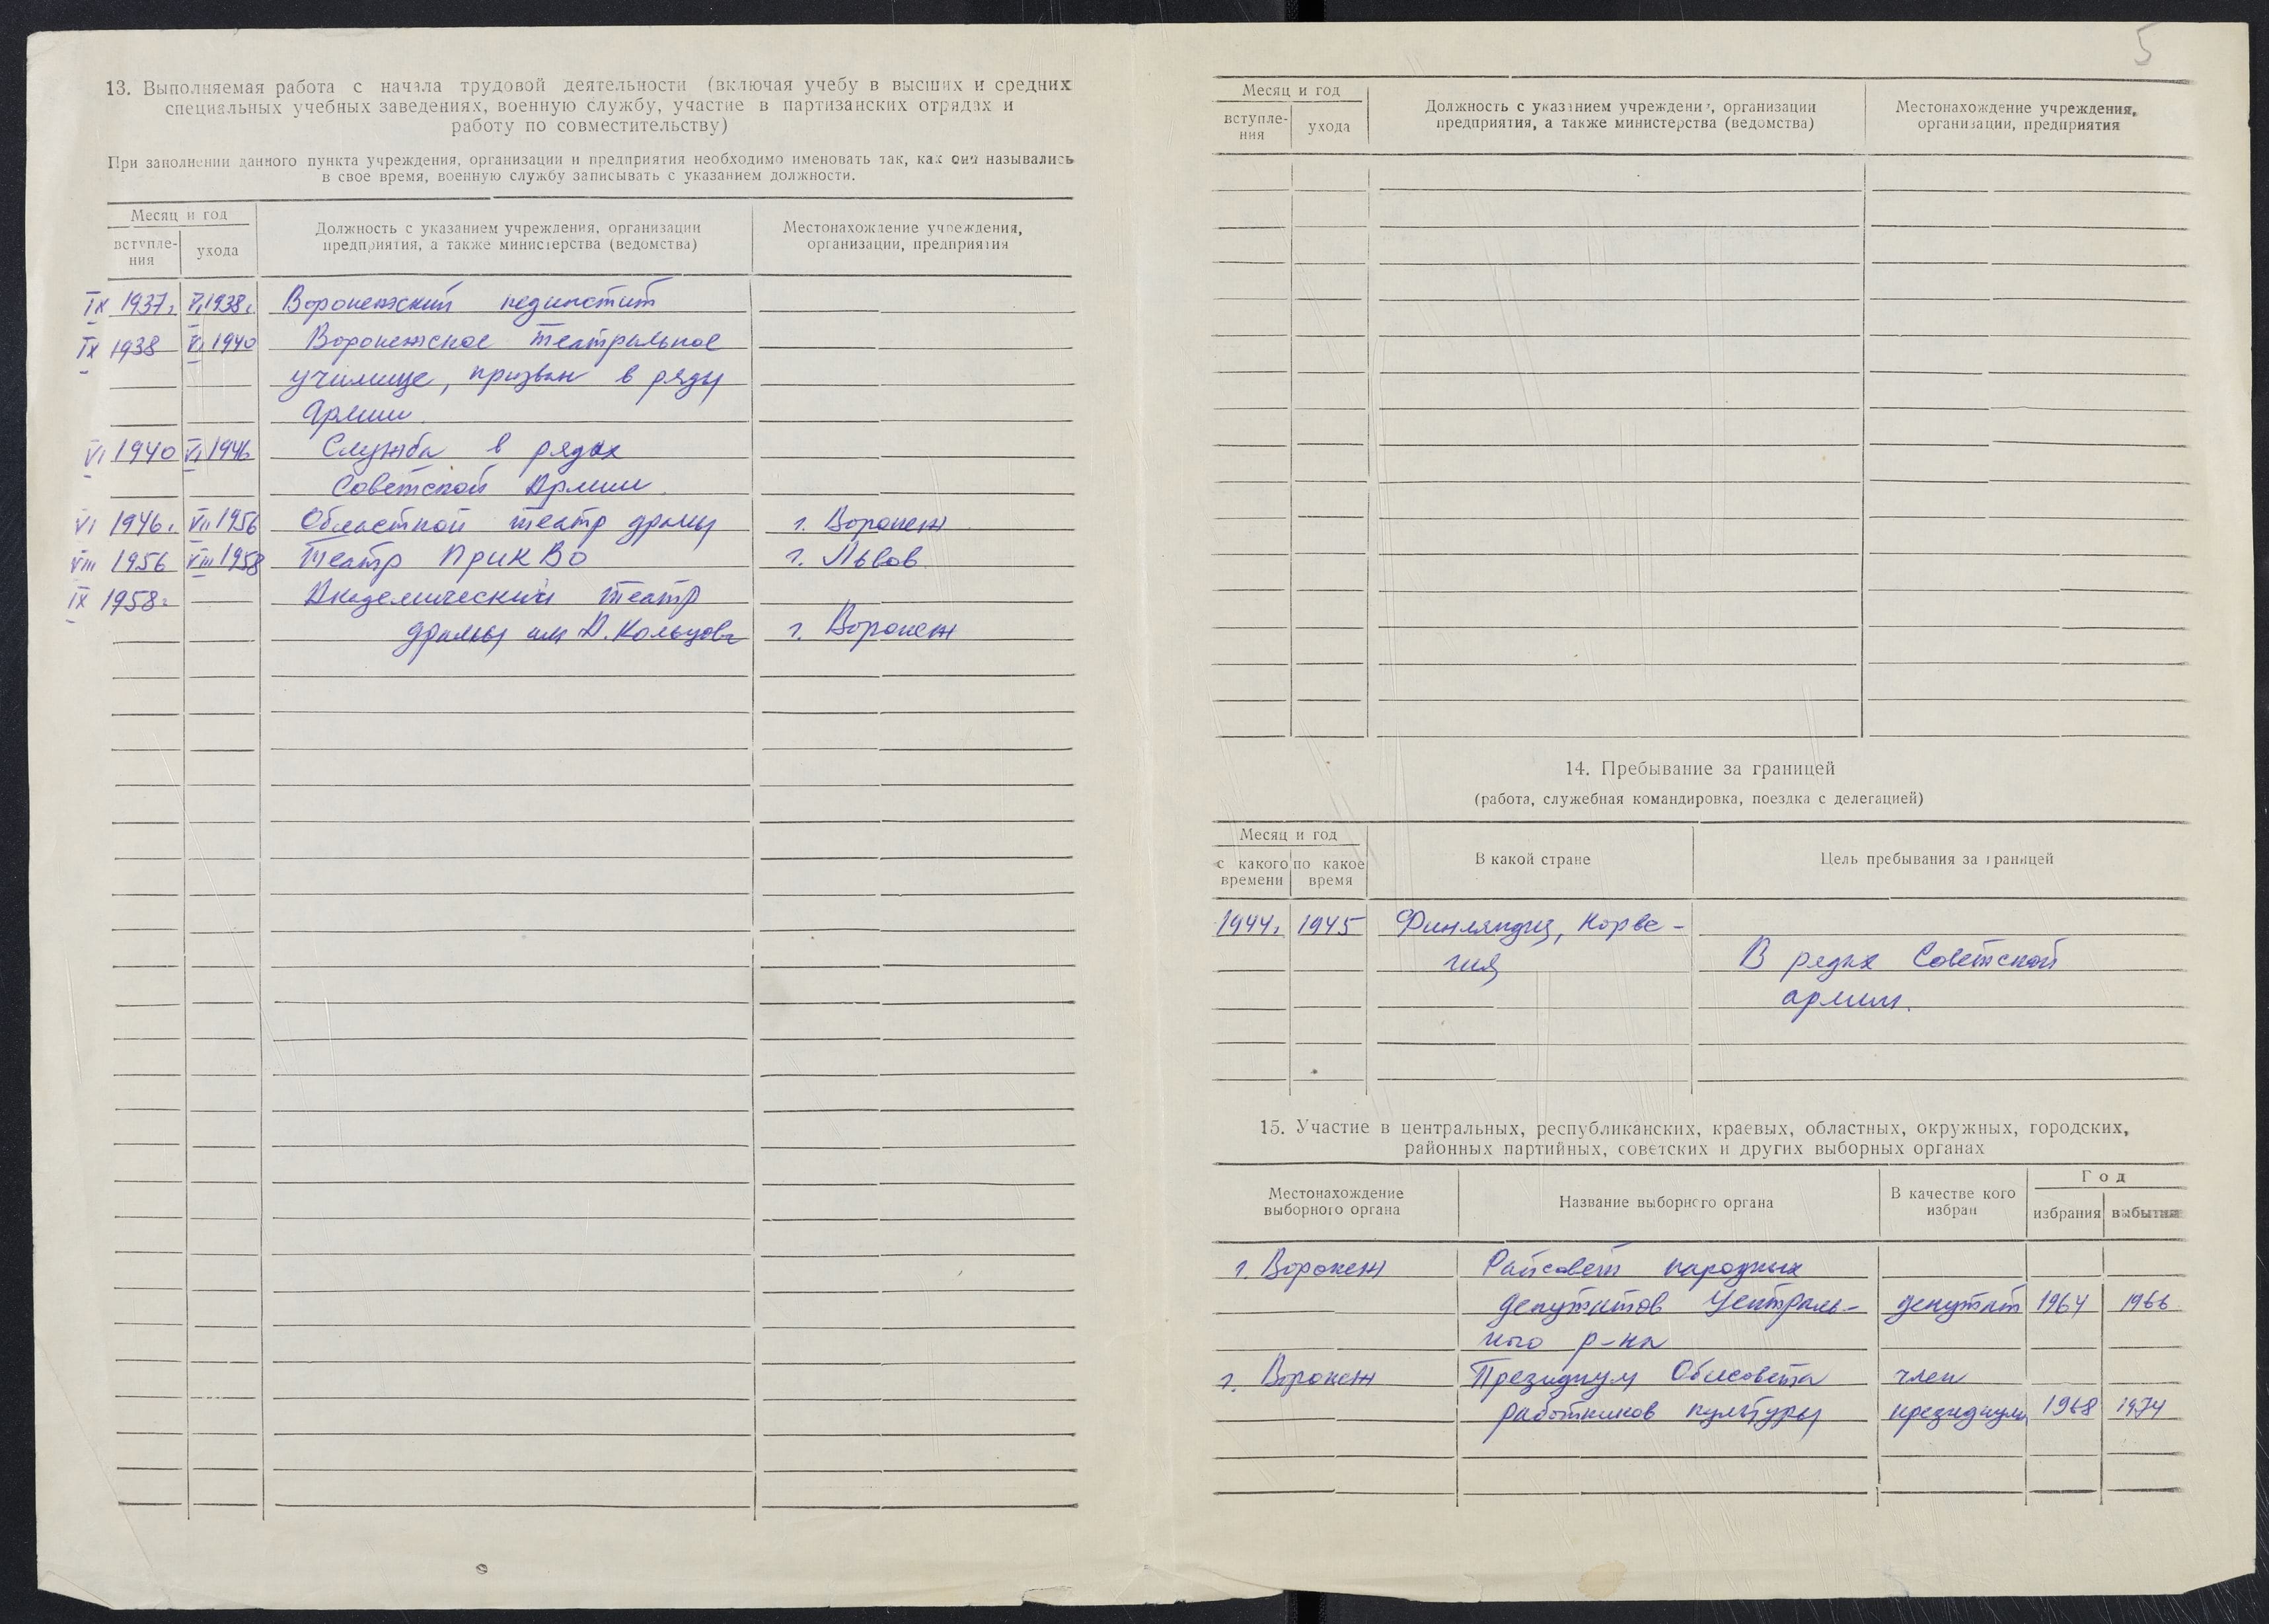 5
13. Выполняемая работа с начала трудовой деятельности (включая учебу в высших и средних
специальных учебных заведениях, военную службу, участие в партизанских отрядах и
работу по совместительству)
При заполнении данного пункта учреждения, организации и предприятия необходимо именовать так, как они назывались
в свое время, военную службу записывать с указанием должности.
Месяц и год
вступле-
ния
ухода
Должность с указанием учреждения, организации
предприятия, а также министерства (ведомства)
Местонахождение учреждения,
организации, предприятия
IX 1937г. VI 1938г. Воронежский пединстит
IX 1938 VI 1940 Воронежское театральное
училище, призван в ряды
Армии
VI 1940 VI 1946 Служба в рядах
Советской Армии.
VI 1946г. VII 1956 Областной театр драмы г. Воронеж
VIII 1956 VIII 1958 Театр ПрикВО г. Львов.
IX 1958г. Академический театр
драмы им А. Кольцова г. Воронеж
Месяц и год
вступле-
ния
ухода
Должность с указанием учреждения, организации
предприятия, а также министерства (ведомства)
Местонахождение учреждения,
организации, предприятия
14. Пребывание за границей
(работа, служебная командировка, поездка с делегацией)
Месяц и год
с какого
времени
по какое
время
В какой стране
Цель пребывания за границей
1944г. 1945 Финляндия, Норве-
гия В рядах Советской
армии.
15. Участие в центральных, республиканских, краевых, областных, окружных, городских,
районных партийных, советских и других выборных органах
Местонахождение
выборного органа
Название выборного органа
В качестве кого
избран
Год
избрания
выбытия
г. Воронеж Райсовет народных
депутатов Централь- депутат 1964 1966
ного р-на
г. Воронеж Президиум Облсовета член
работников культуры президиума 1968 1974